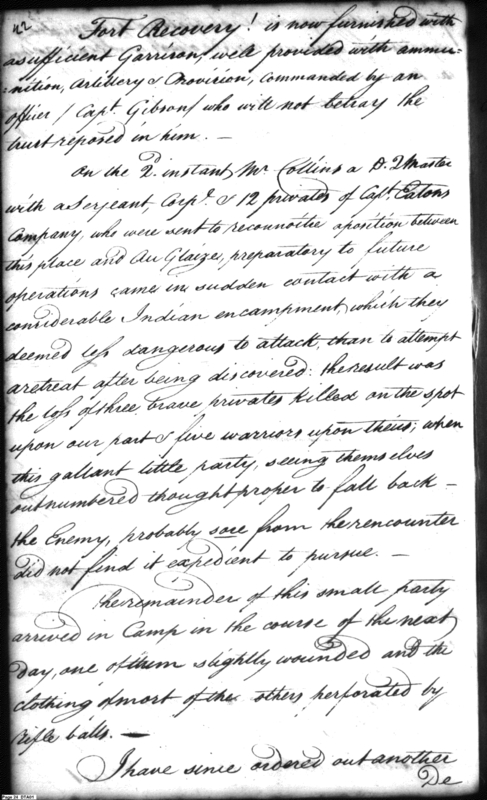 42
Fort Recovery! is now furnished with
a sufficient Garrison, well provided with ammu-
-nition, Artillery & Provision, Commanded by an
officer / Capt. Gibson / who will not betray the
trust reposed in him. —
On the 2d. instant Mr Collins a D. Q Master
with a Serjeant, Corpl. & 12 privates of Capt. Eatons
Company, who were sent to reconnoitre a position between
this place and Au Glaize, preparatory to future
operations came in sudden contact with a
considerable Indian encampment, which they
deemed less dangerous to attack, than to attempt
a retreat after being discovered: the result was
the loss of three brave privates killed on the spot
upon our part & five warriors upon theirs; when
this gallant little party, seeing themselves
outnumbered thought proper to fall back —
the Enemy, probably sore from the rencounter
did not find it expedient to pursue. —
The remainder of this small party
arrived in Camp in the course of the next
day, one of them slightly wounded and the
clothing of most of the others perforated by
Rifle balls. —
I have since ordered out another
De